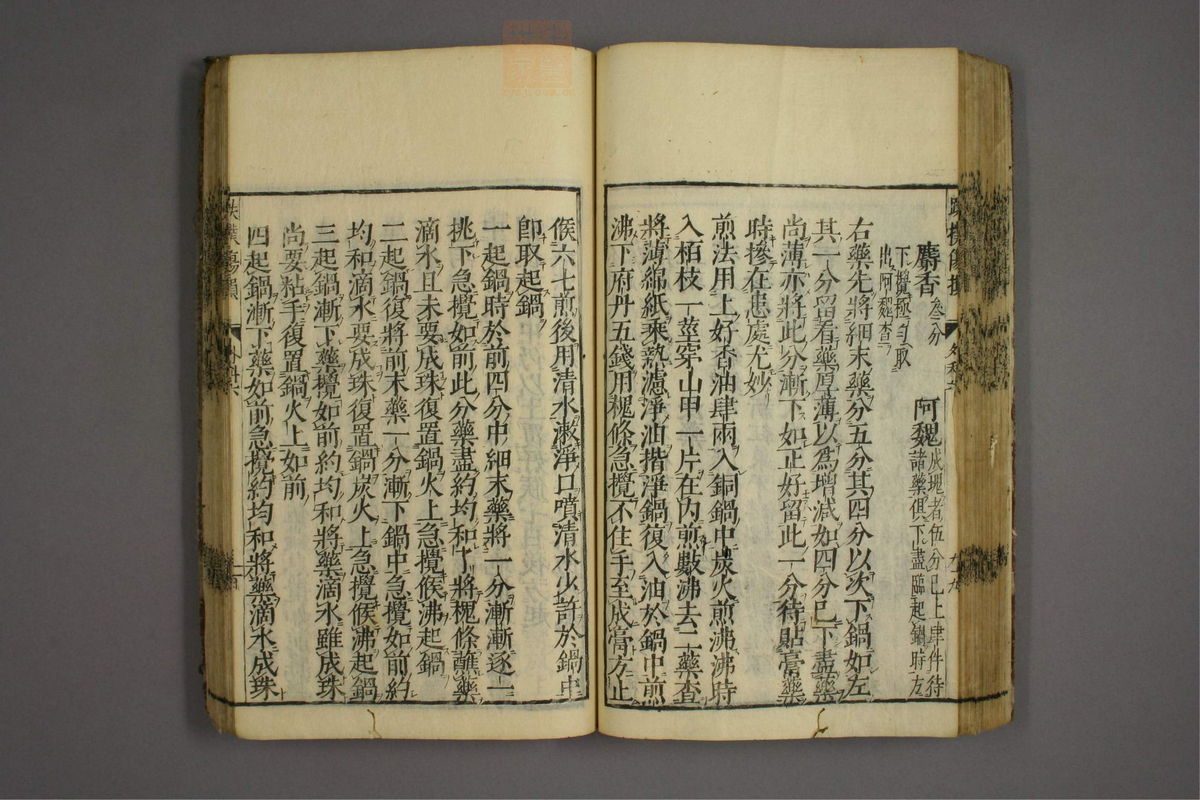 麝香 叁分 阿魏 成塊者伍分已上肆件待諸藥俱下盡臨起鍋時方
下攪極勻取
出阿魏查
右藥先將細末藥分五分其四分以次下鍋如左
其一分留看藥厚薄以爲增減如四分已下盡藥
尚薄亦將此分漸下如正好留此一分待貼膏藥
時摻在患處尤妙
煎法用上好香油肆兩入銅鍋中炭火煎沸沸時
入栢枝一莖穿山甲一片在内煎數沸去二藥查
將薄綿紙乘熱濾淨油揩淨鍋復入油於鍋中煎
沸下府丹五錢用槐條急攪不住手至成膏方止
候六七煎後用清水漱淨口噴清水少許於鍋中
卽取起鍋
一起鍋時於前四分中細末藥將一分漸漸逐一
挑下急攪如前此分藥盡約均和了將槐條蘸藥
滴水且未要成珠復置鍋火上急攪候沸起鍋
二起鍋復將前末藥一分漸下鍋中急攪如前約
均和滴水要成珠復置鍋炭火上急攪候沸起鍋
三起鍋漸下藥攪如前約均和將藥滴水雖成珠
尚要粘手復置鍋火上如前
四起鍋漸下藥如前急攪約均和將藥滴水成珠